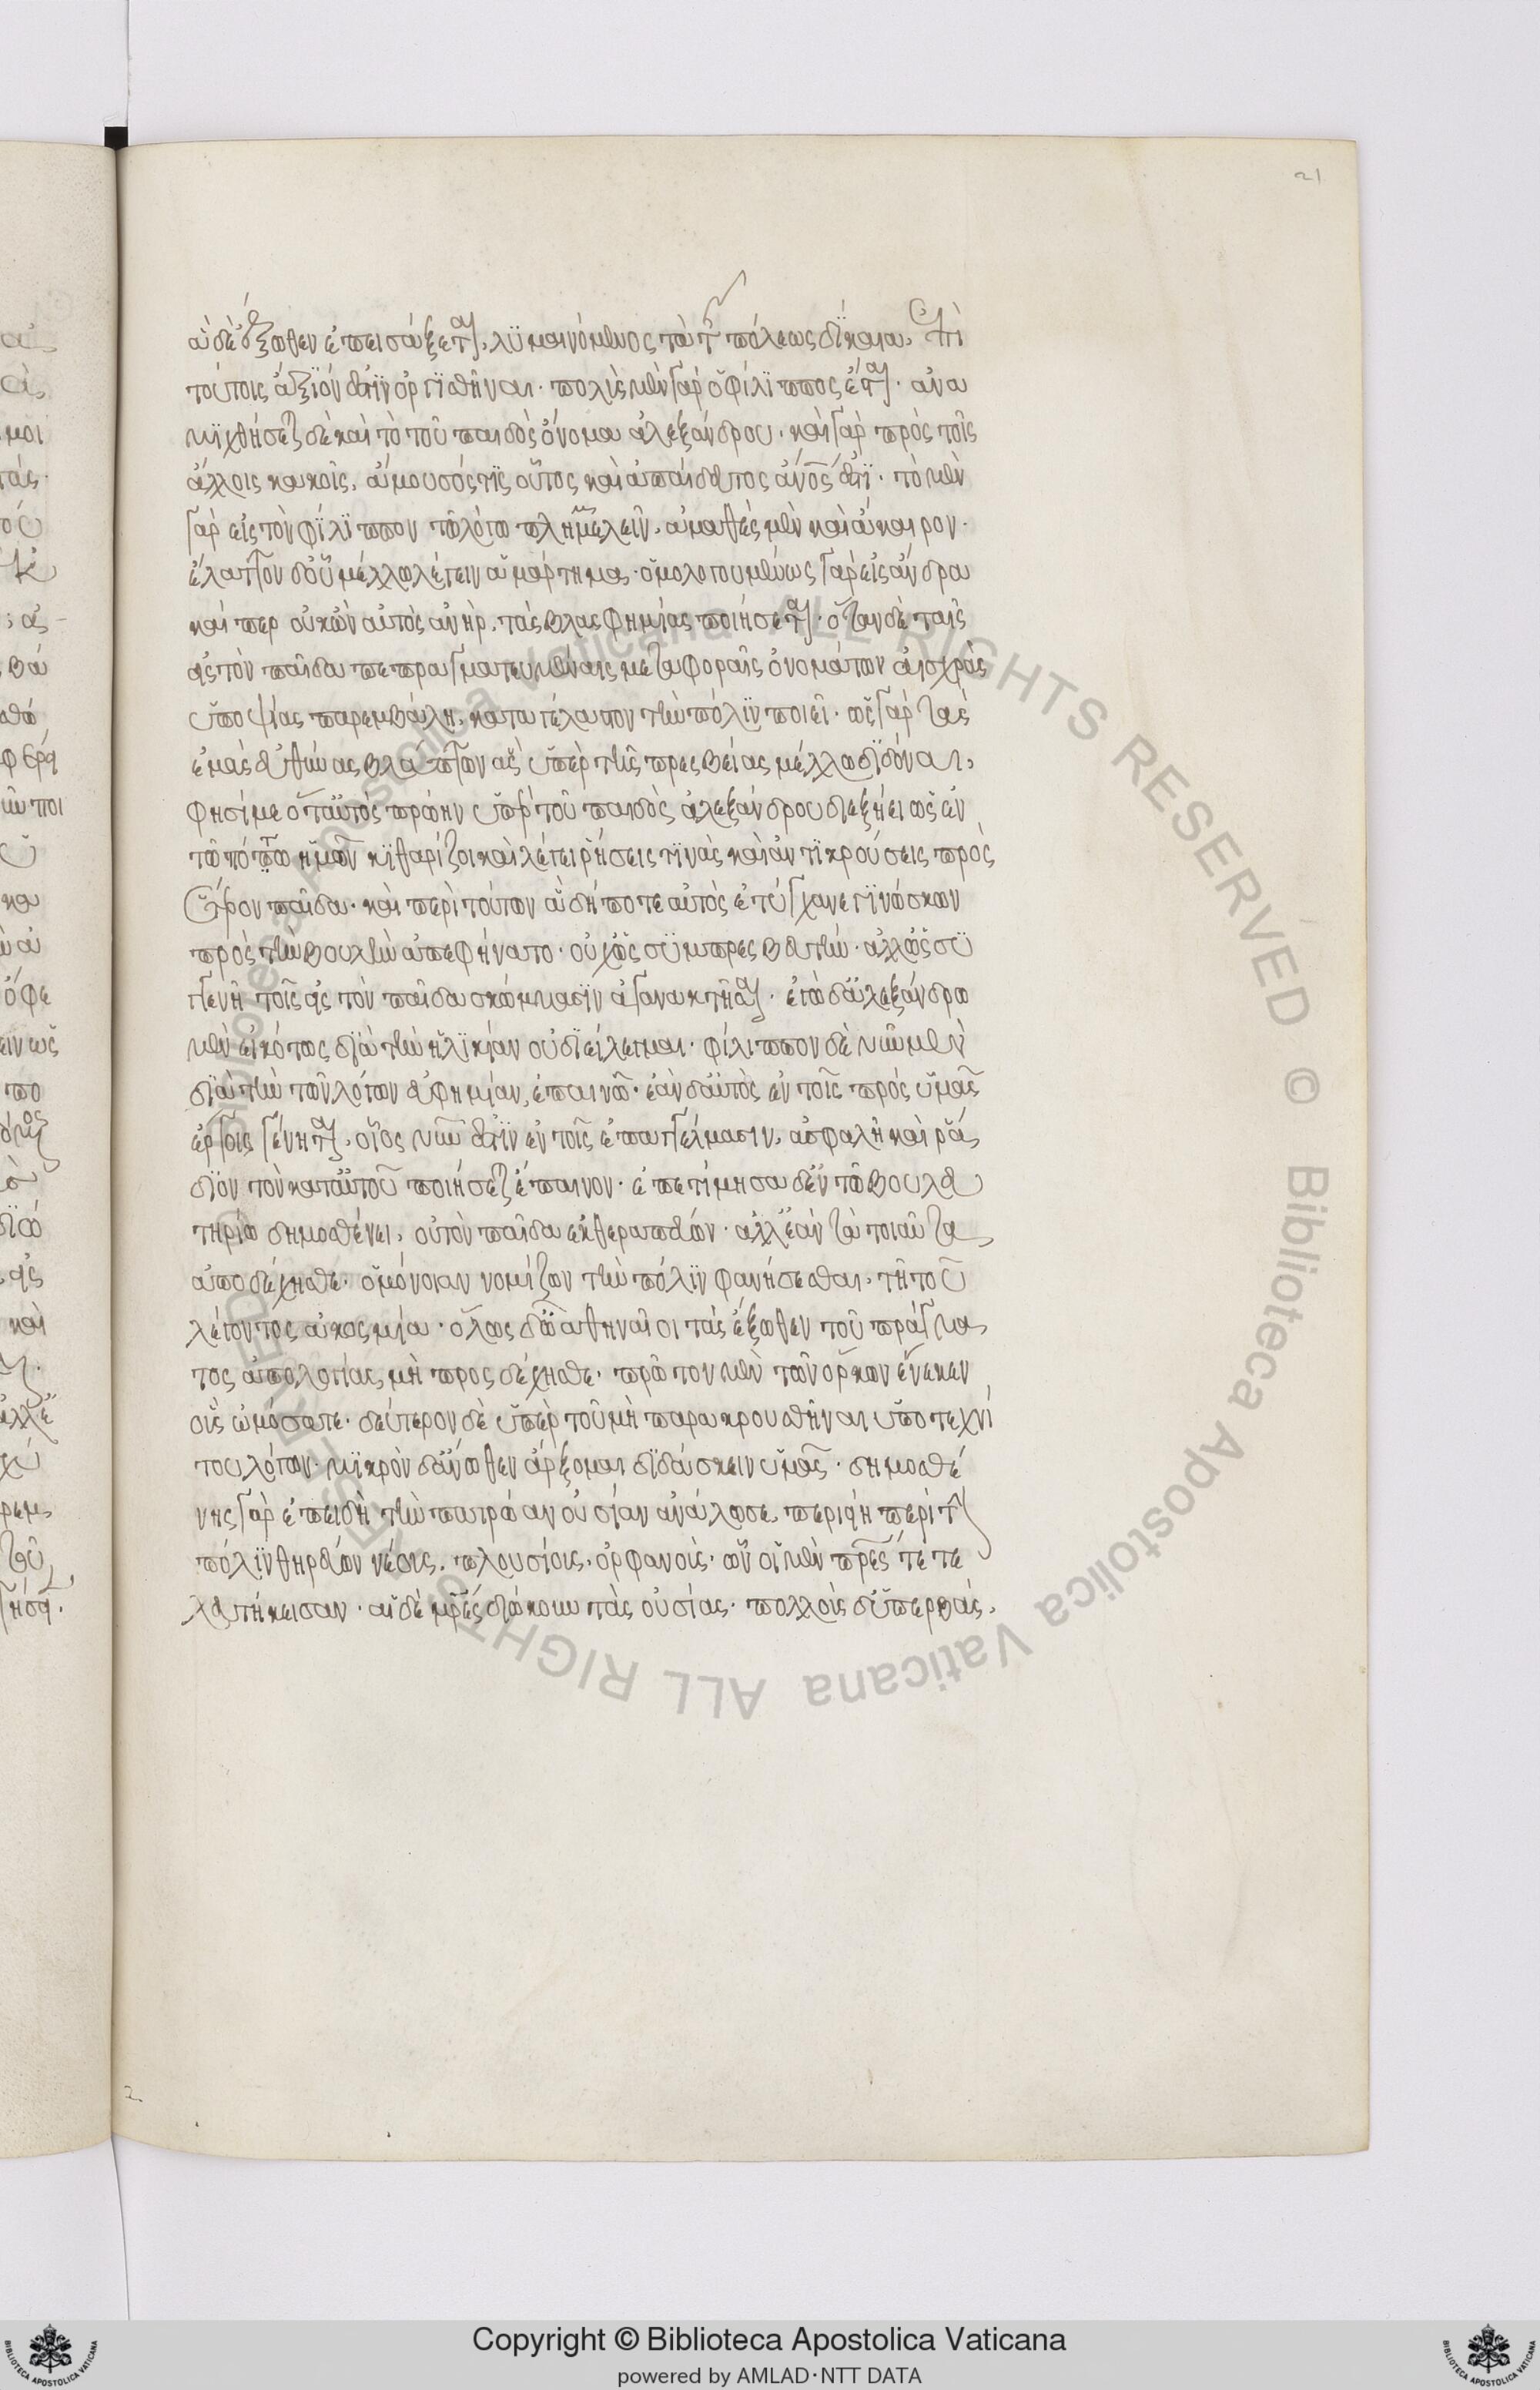 21
ἃ δὲ ἔξωθεν ἐπεισάξεται, λυμαινόμενος τὰ τῆς πόλεως δίκαια, ἐπὶ
τούτοις ἄξιόν ἐστιν ὀργισθῆναι· πολὺς μὲν γὰρ ὁ φίλιππος ἔσται· ἀνα
μιχθήσεται δὲ καὶ τὸ τοῦ παιδὸς ὄνομα ἀλεξάνδρου· καὶ γὰρ πρὸς τοῖς
ἄλλοις κακοῖς, ἄμουσός τις οὗτος καὶ ἀπαίδευτος ἄνος ἐστί· τὸ μὲν
γὰρ εἰς τὸν φίλιππον τῶ λόγω πλημμελεῖν, ἀμαθὲς μὲν καὶ ἄκαιρον·
ἔλαττον δ' οὗ μέλλω λέγειν ἁμάρτημα· ὁμολογουμένως γὰρ εἰς ἄνδρα
καίπερ οὐκ ὢν αὐτὸς ἀνὴρ, τὰς βλασφημίας ποιήσεται· ὅταν δὲ ταῖς
εἰς τὸν παῖδα πεπραγματευμέναις μεταφοραῖς ὀνομάτων αἰσχρὰς
ὑποψίας παρεμβάλη, καταγέλαστον τὴν πόλιν ποιεῖ· ὡς γὰρ τὰς
ἐμὰς εὐθύνας βλάπτων ἃς ὑπὲρ τῆς πρεσβείας μέλλω διδόναι,
φησί με ὅτ' αὐτὸς πρώην ὑπὲρ τοῦ παιδὸς ἀλεξάνδρου διεξήει ὡς ἐν
τῶ πότω ἡμῶν κιθαρίζοι καὶ λέγει ῥήσεις τινὰς καὶ ἀντικρούσεις πρὸς
ἕτερον παῖδα· καὶ περὶ τούτων ἃ δήποτε αὐτὸς ἐτύγχανε γινώσκων
πρὸς τὴν βουλὴν ἀπεφήνατο· οὐχ ὡς συμπρεσβευτὴν· ἀλλ' ὡς συ
γγενῆ τοῖς εἰς τὸν παῖδα σκώμμασιν ἀγανακτῆσαι· ἐγὼ δ' ἀλεξάνδρω
μὲν εἰκότως διὰ τὴν ἡλικίαν οὐ διείλεγμαι· φίλιππον δὲ νῦν μὲν
διὰ τὴν τῶν λόγων εὐφημίαν, ἐπαινῶ· ἐὰν δ' αὐτὸς ἐν τοῖς πρὸς ὑμᾶς
ἔργοις γένηται, οἷος νῦν ἐστὶν ἐν τοῖς ἐπαγγέλμασιν, ἀσφαλῆ καὶ ῥά
διον τὸν κατ' αὐτοῦ ποιήσεται ἔπαινον· ἐπετίμησα δ' ἐν τῶ βουλευ
τηρίω δημοσθένει, οὐ τὸν παῖδα ἐκθεραπεύων· ἀλλ' ἐὰν τὰ τοιαῦτα
ἀποδέχησθε· ὁμόνοιαν νομίζων τὴν πόλιν φανήσεσθαι, τῆ τοῦ
λέγοντος ἀκοσμία· ὅλως δ' ὦ ἀθηναῖοι τὰς ἔξωθεν τοῦ πράγμα
τος ἀπολογίας, μὴ προσδέχησθε· πρῶτον μὲν τῶν ὅρκων ἕνεκεν
οὓς ὠμόσατε· δεύτερον δὲ ὑπὲρ τοῦ μὴ παρακρουσθῆναι ὑπὸ τεχνί
του λόγων· μικρὸν δ' ἄνωθεν ἄρξομαι διδάσκειν ὑμᾶς· δημοσθέ
νης γὰρ ἐπειδὴ τὴν πατρώαν οὐσίαν ἀνάλωσε, περιήει περὶ τὴν
πόλιν θηρεύων νέους, πλουσίους, ὀρφανοὺς· ὧν οἱ μὲν πρες τετε
λευτήκεισαν· αἱ δὲ μρες διώκουν τὰς οὐσίας· πολλοὺς δ' ὑπερβὰς,
Copyright © Biblioteca Apostolica Vaticana
powered by AMLAD·NTT DATA